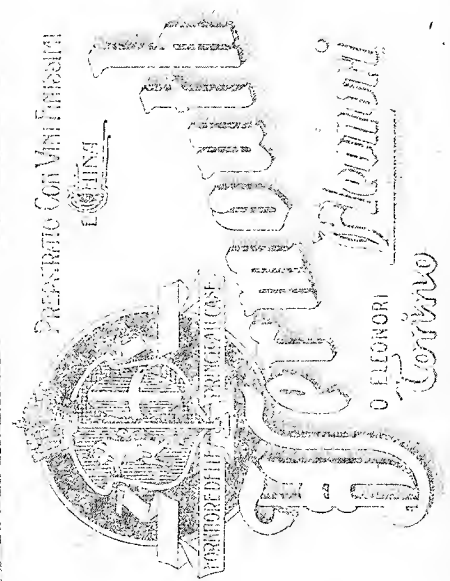 PREPARATO CON VINI FINISSIMI
E CHINA
FORNITORE DELLE CASE
Vermouth
O ELEONORI
Torino